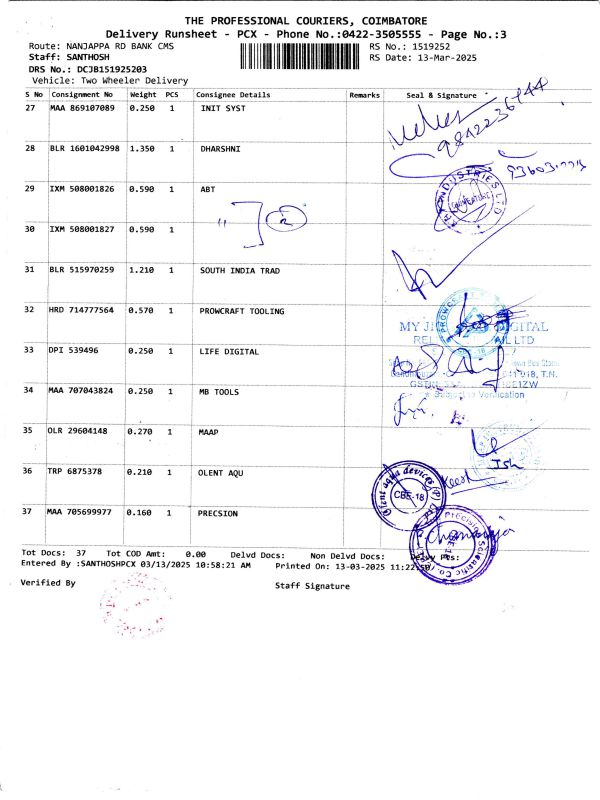 THE PROFESSIONAL COURIERS, COIMBATORE
Delivery Runsheet - PCX - Phone No.:0422-3505555 - Page No.:3
Route: NANJAPPA RD BANK CMS RS No.: 1519252
Staff: SANTHOSH RS Date: 13-Mar-2025
DRS No.: DCJB151925203
Vehicle: Two Wheeler Delivery
S No Consignment No Weight PCS Consignee Details Remarks Seal & Signature
27 MAA 869107089 0.250 1 INIT SYST
28 BLR 1601042998 1.350 1 DHARSHNI
29 IXM 508001826 0.590 1 ABT
30 IXM 508001827 0.590 1 "
31 BLR 515970259 1.210 1 SOUTH INDIA TRAD
32 HRD 714777564 0.570 1 PROWCRAFT TOOLING
MY JI DIGITAL
REL AIL LTD
33 DPI 539496 0.250 1 LIFE DIGITAL
641 018, T.N.
Subject to Verification
34 MAA 707043824 0.250 1 MB TOOLS
35 OLR 29604148 0.270 1 MAAP
36 TRP 6875378 0.210 1 OLENT AQU
Olent aqua devices (P) Ltd
CBE-18
37 MAA 705699977 0.160 1 PRECSION
Precision Scientific Co.
Tot Docs: 37 Tot COD Amt: 0.00 Delvd Docs: Non Delvd Docs: Delvy Pcs:
Entered By :SANTHOSHPCX 03/13/2025 10:58:21 AM Printed On: 13-03-2025 11:22:50
Verified By Staff Signature